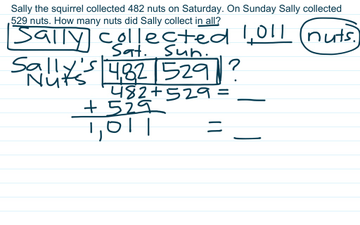 Sally the squirrel collected 482 nuts on Saturday. On Sunday Sally collected
529 nuts. How many nuts did Sally collect in all?
Sally collected 1,011 nuts.
Sat. Sun.
Sally's 482 529 ?
Nuts
482 + 529 = __
+ 529
1,011 = __